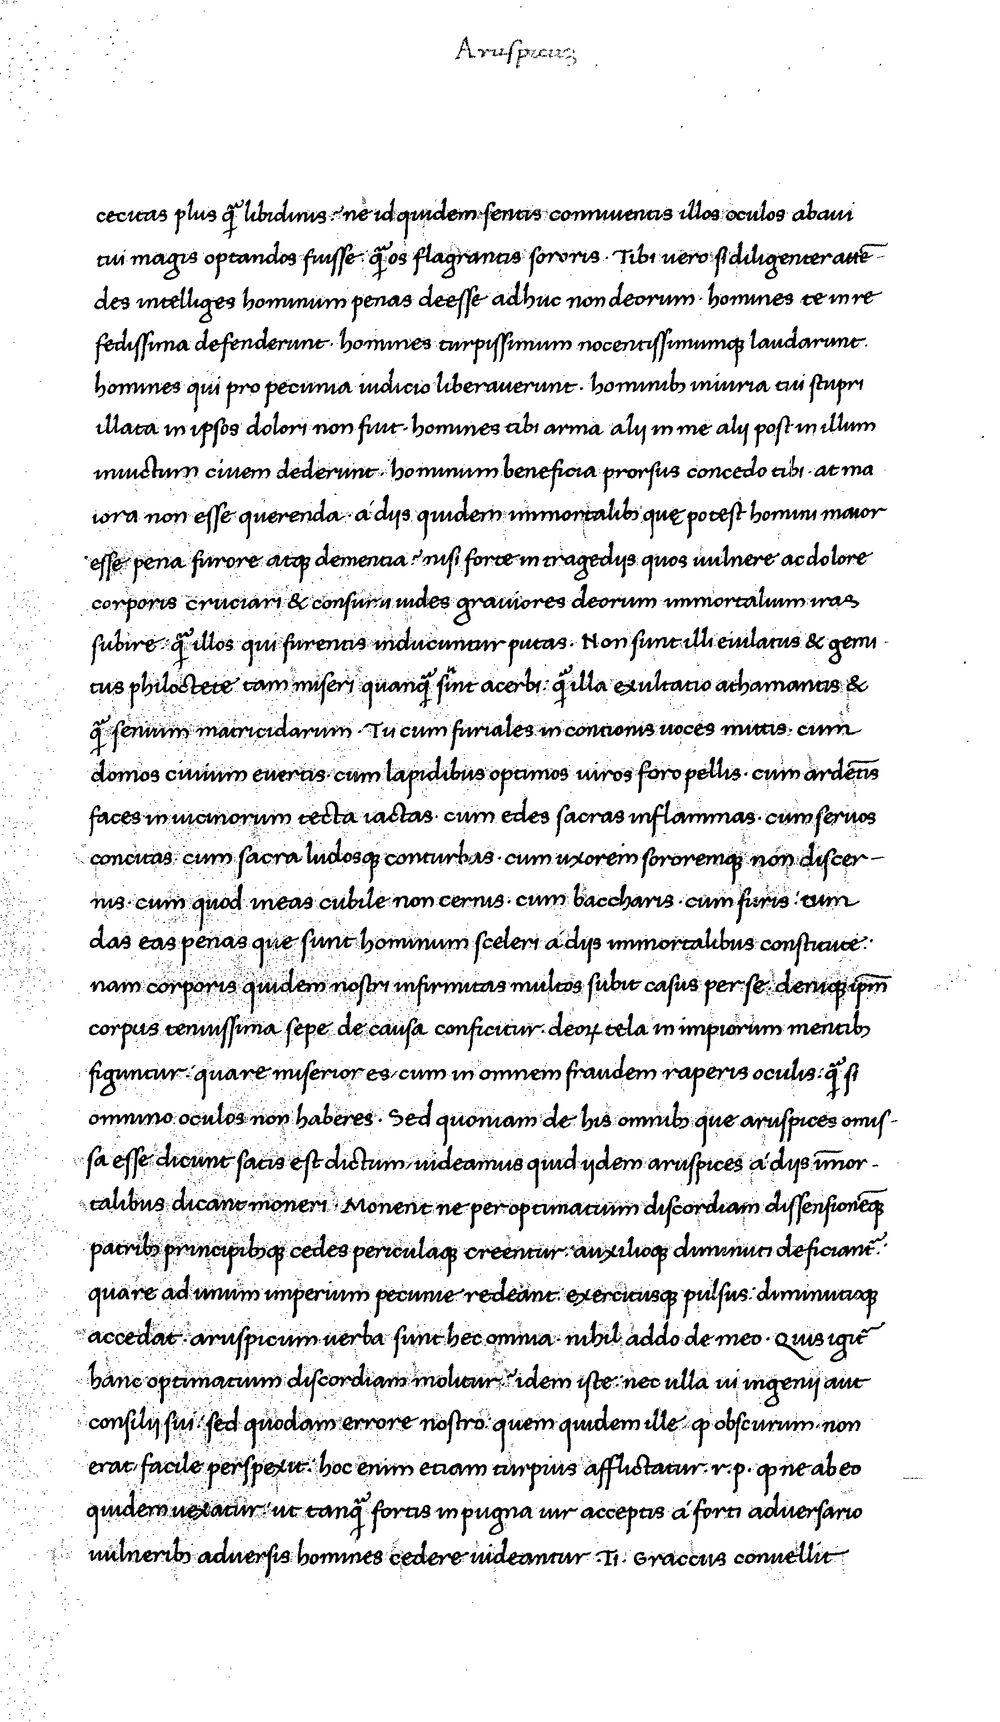 Aruspicus
cecitas plus q̃ libidinis: ne id quidem sentis conniventis illos oculos abavi
tui magis optandos fuisse: q̃ os flagrantis sororis. Tibi uero si diligenter attē-
des intelliges hominum penas deesse adhuc non deorum. homines te in re
fedissima defenderunt. homines turpissimum nocentissimumqꝫ laudarunt.
homines qui pro pecunia iudicio liberauerunt. hominibꝫ iniuria tui stupri
illata in ipsos dolori non fuit. homines tibi arma alij in me alij post in illum
inuictum ciuem dederunt. hominum beneficia prorsus concedo tibi. at ma
iora non esse querenda. á dijs quidem immortalibꝫ quę potest homini maior
esse pena furore atqꝫ dementia? nisi forte in tragedijs quos uulnere ac dolore
corporis cruciari & consumi uides grauiores deorum immortalium iras
subire: q̃ illos qui furentis inducuntur putas. Non sunt illi eiulatus & gemi
tus philoctete tam miseri quanq̃ sint acerbi: q̃ illa exultatio athamantis &
q̃ senium matricidarum. Tu cum furiales in contionis uoces mittis. cum
domos ciuium euertis. cum lapidibus optimos uiros foro pellis. cum ardētis
faces in uicinorum tecta iactas. cum edes sacras inflammas. cum seruos
concitas. cum sacra ludosqꝫ conturbas. cum uxorem sororemqꝫ non discer-
nis. cum quod ineas cubile non cernis. cum baccharis. cum furis: tum
das eas penas que sunt hominum sceleri á dijs immortalibus constitute:
nam corporis quidem nostri infirmitas multos subit casus per se: deniqꝫ ipm̄
corpus tenuissima sepe de causa conficitur. deoꝝ tela in impiorum mentibꝫ
figuntur: quare miserior es cum in omnem fraudem raperis oculis: q̃ si
omnino oculos non haberes. Sed quoniam de his omnibꝫ que aruspices omis-
sa esse dicunt satis est dictum uideamus quid ijdem aruspices á dijs im̄or-
talibus dicant moneri. Monent ne per optimatium discordiam dissensionēqꝫ
patribꝫ principibꝫqꝫ cedes periculaqꝫ creentur: auxilioqꝫ diminuti deficiant̃:
quare ad unum imperium pecunie redeant exercitusqꝫ pulsus: diminutioqꝫ
accedat. aruspicum uerba sunt hec omnia. nihil addo de meo. Quis igit̃
hanc optimatium discordiam molitur? idem iste: nec ulla ui ingenij aut
consilij sui: sed quodam errore nostro: quem quidem ille ꝙ obscurum non
erat facile perspexit: hoc enim etiam turpius afflictatur. r.p. ꝙ ne ab eo
quidem uexatur: ut tanq̃ fortis in pugna uir acceptis á forti aduersario
uulneribꝫ aduersis homines cedere uideantur. Ti. Graccus conuellit